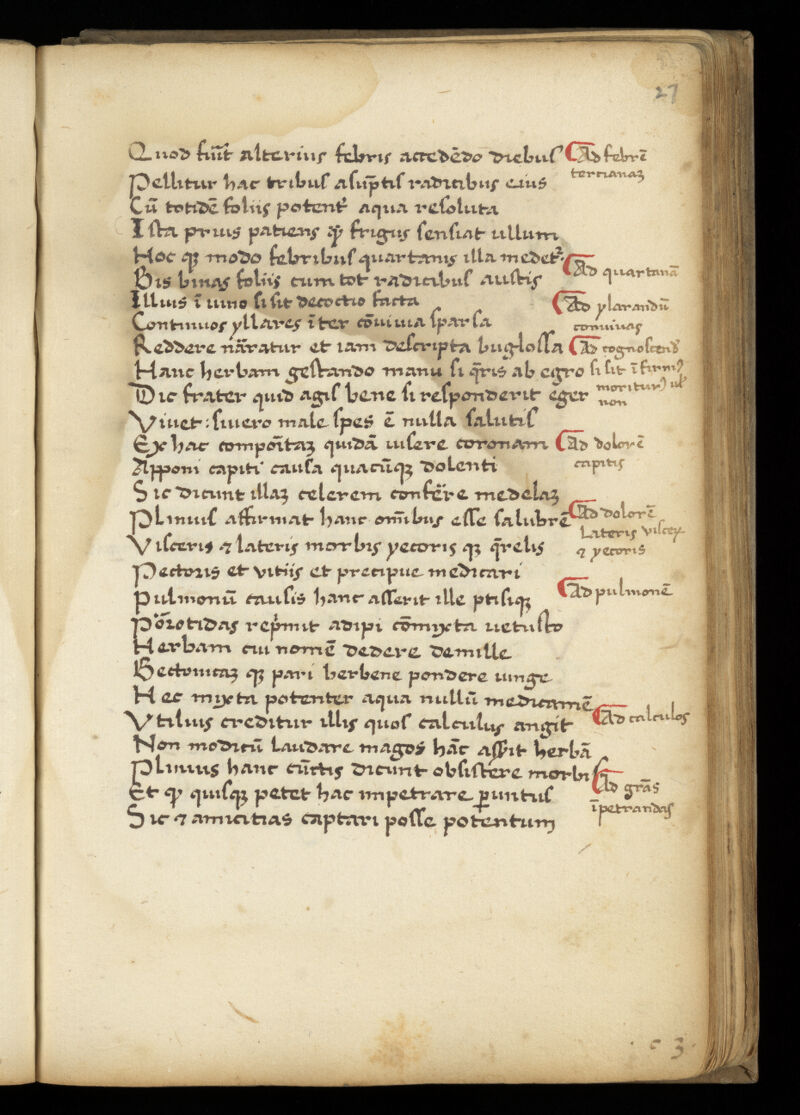 27
Quod fiūt alterius febris accedēdo diebus
Ad febrē
tercianaꝫ
Pellitur hac tribus asūptis radicibus eius
Cū totidē foliis potent᷑ aqua resoluta
Ista prius patiens ꝙ̄ frigus sensiat ullum
Hoc qꝫ modo febribus quartanis illa medet᷑
Ad quartanā
Bis binas foliis cum tot radicibus austis
Illius ī uino si sit decoctio facta
Ad ylarandū
conuiuas
Continuos yllares īter cōuiuia sparsa
Reddere nāratur et iam descripta buglossa
Ad cognoscend᷑
Hanc herbam gestando manu si q̄ris ab egro
si sit īfirmꝰ
moritur᷑ ul᷑
non
Dic frater quid agis bene si responderit eger
Viuet: siuero male spes ē nulla salutis
Ex hac compoĩtaꝫ quidā iusere coronam
Ad dolorē
capitis
Apponi capiti causa quacūqꝫ dolenti
Sic dicunt illaꝫ celerem conferre medelaꝫ
Plinius affirmat hanc om̄ibus esse salubrē
Ad dolorē
Lateris viscer
⁊ yecoris
Visceris ⁊ lateris morbis yecoris qꝫ q̄relis
Pectoris et vitiis et precipue medicari
Pulmonū causis hanc asserit ille ptisiqꝫ
Ad pulmonē
Parotidas rep̄mit adipi cōmixta uetusto
Herbam cui nomē dedere demille
Bectonicaꝫ qꝫ pari berbene pondere iunge
Hec mixta potenter aqua nullū medicamē
Vtilius creditur illis quos calculus angit
Ad calculos
Non modicū laudare magos hāc asserit herbā
Plinius hanc cūctis dicunt obsistere morbis
Et ꝙ quisqꝫ petet hac impetrare ꝑuntus
Ad grās
īpetrandas
Sic ⁊ amicitias captari posse potentum
c 3